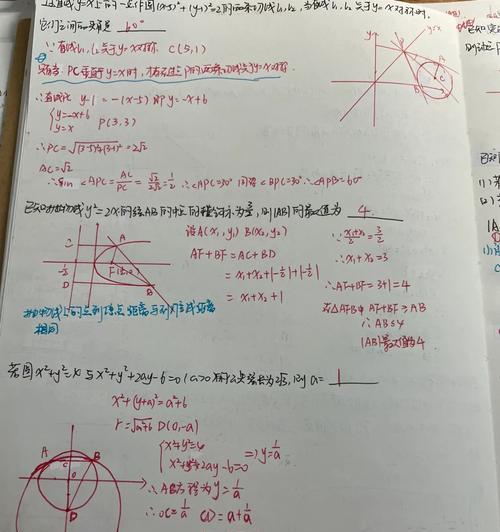 过直线y=x上的一点作圆(x-5)²+(y-1)²=2的两条切线l₁,l₂,当直线l₁,l₂关于y=x对称时,
它们之间的夹角是 60°
∵直线l₁,l₂关于y=x对称 C(5,1)
只有当PC垂直于y=x时,才有过P的两条切线关于y=x对称
∴直线PC y-1=-(x-5) 即 y=-x+6
{y=-x+6
y=x P(3,3)
∴PC=√(3-5)²+(3-1)²=2√2
AC=√2
∴sin∠APC=AC/PC=√2/2√2=1/2 ∴∠APC=30° 同理∠BPC=30° ∴∠APB=60°
y
y=x
A
C
B
已知抛物线y²=2x的弦AB的中点的横坐标为3/2,则|AB|的最大值为 4
设A(x₁,y₁) B(x₂,y₂)
AF+BF=AC+BD
=x₁+x₂+|-1/2|+|-1/2|
=x₁+x₂+1
∵x₁+x₂/2=3/2
∴x₁+x₂=3
∴AF+BF=3+1=4
在△AFB中 AF+BF≥AB
∴AB≤4
|AB|最大值为4
C
A
-1/2
F(1/2,0)
D
B
抛物线上的点到焦点距离与到准线距离
相同
若圆x²+y²=4与x²+y²+2ay-6=0(a>0)的公共弦长为2√3,则a= 1
x²+(y+a)²=a²+6
r=√a²+6 D(0,-a)
{x²+y²=4
x²+y²+2ay-6=0 ⇒y=1/a
∴AB方程为y=1/a
∴OC=1/a CD=a+1/a
A
C
B
O
D